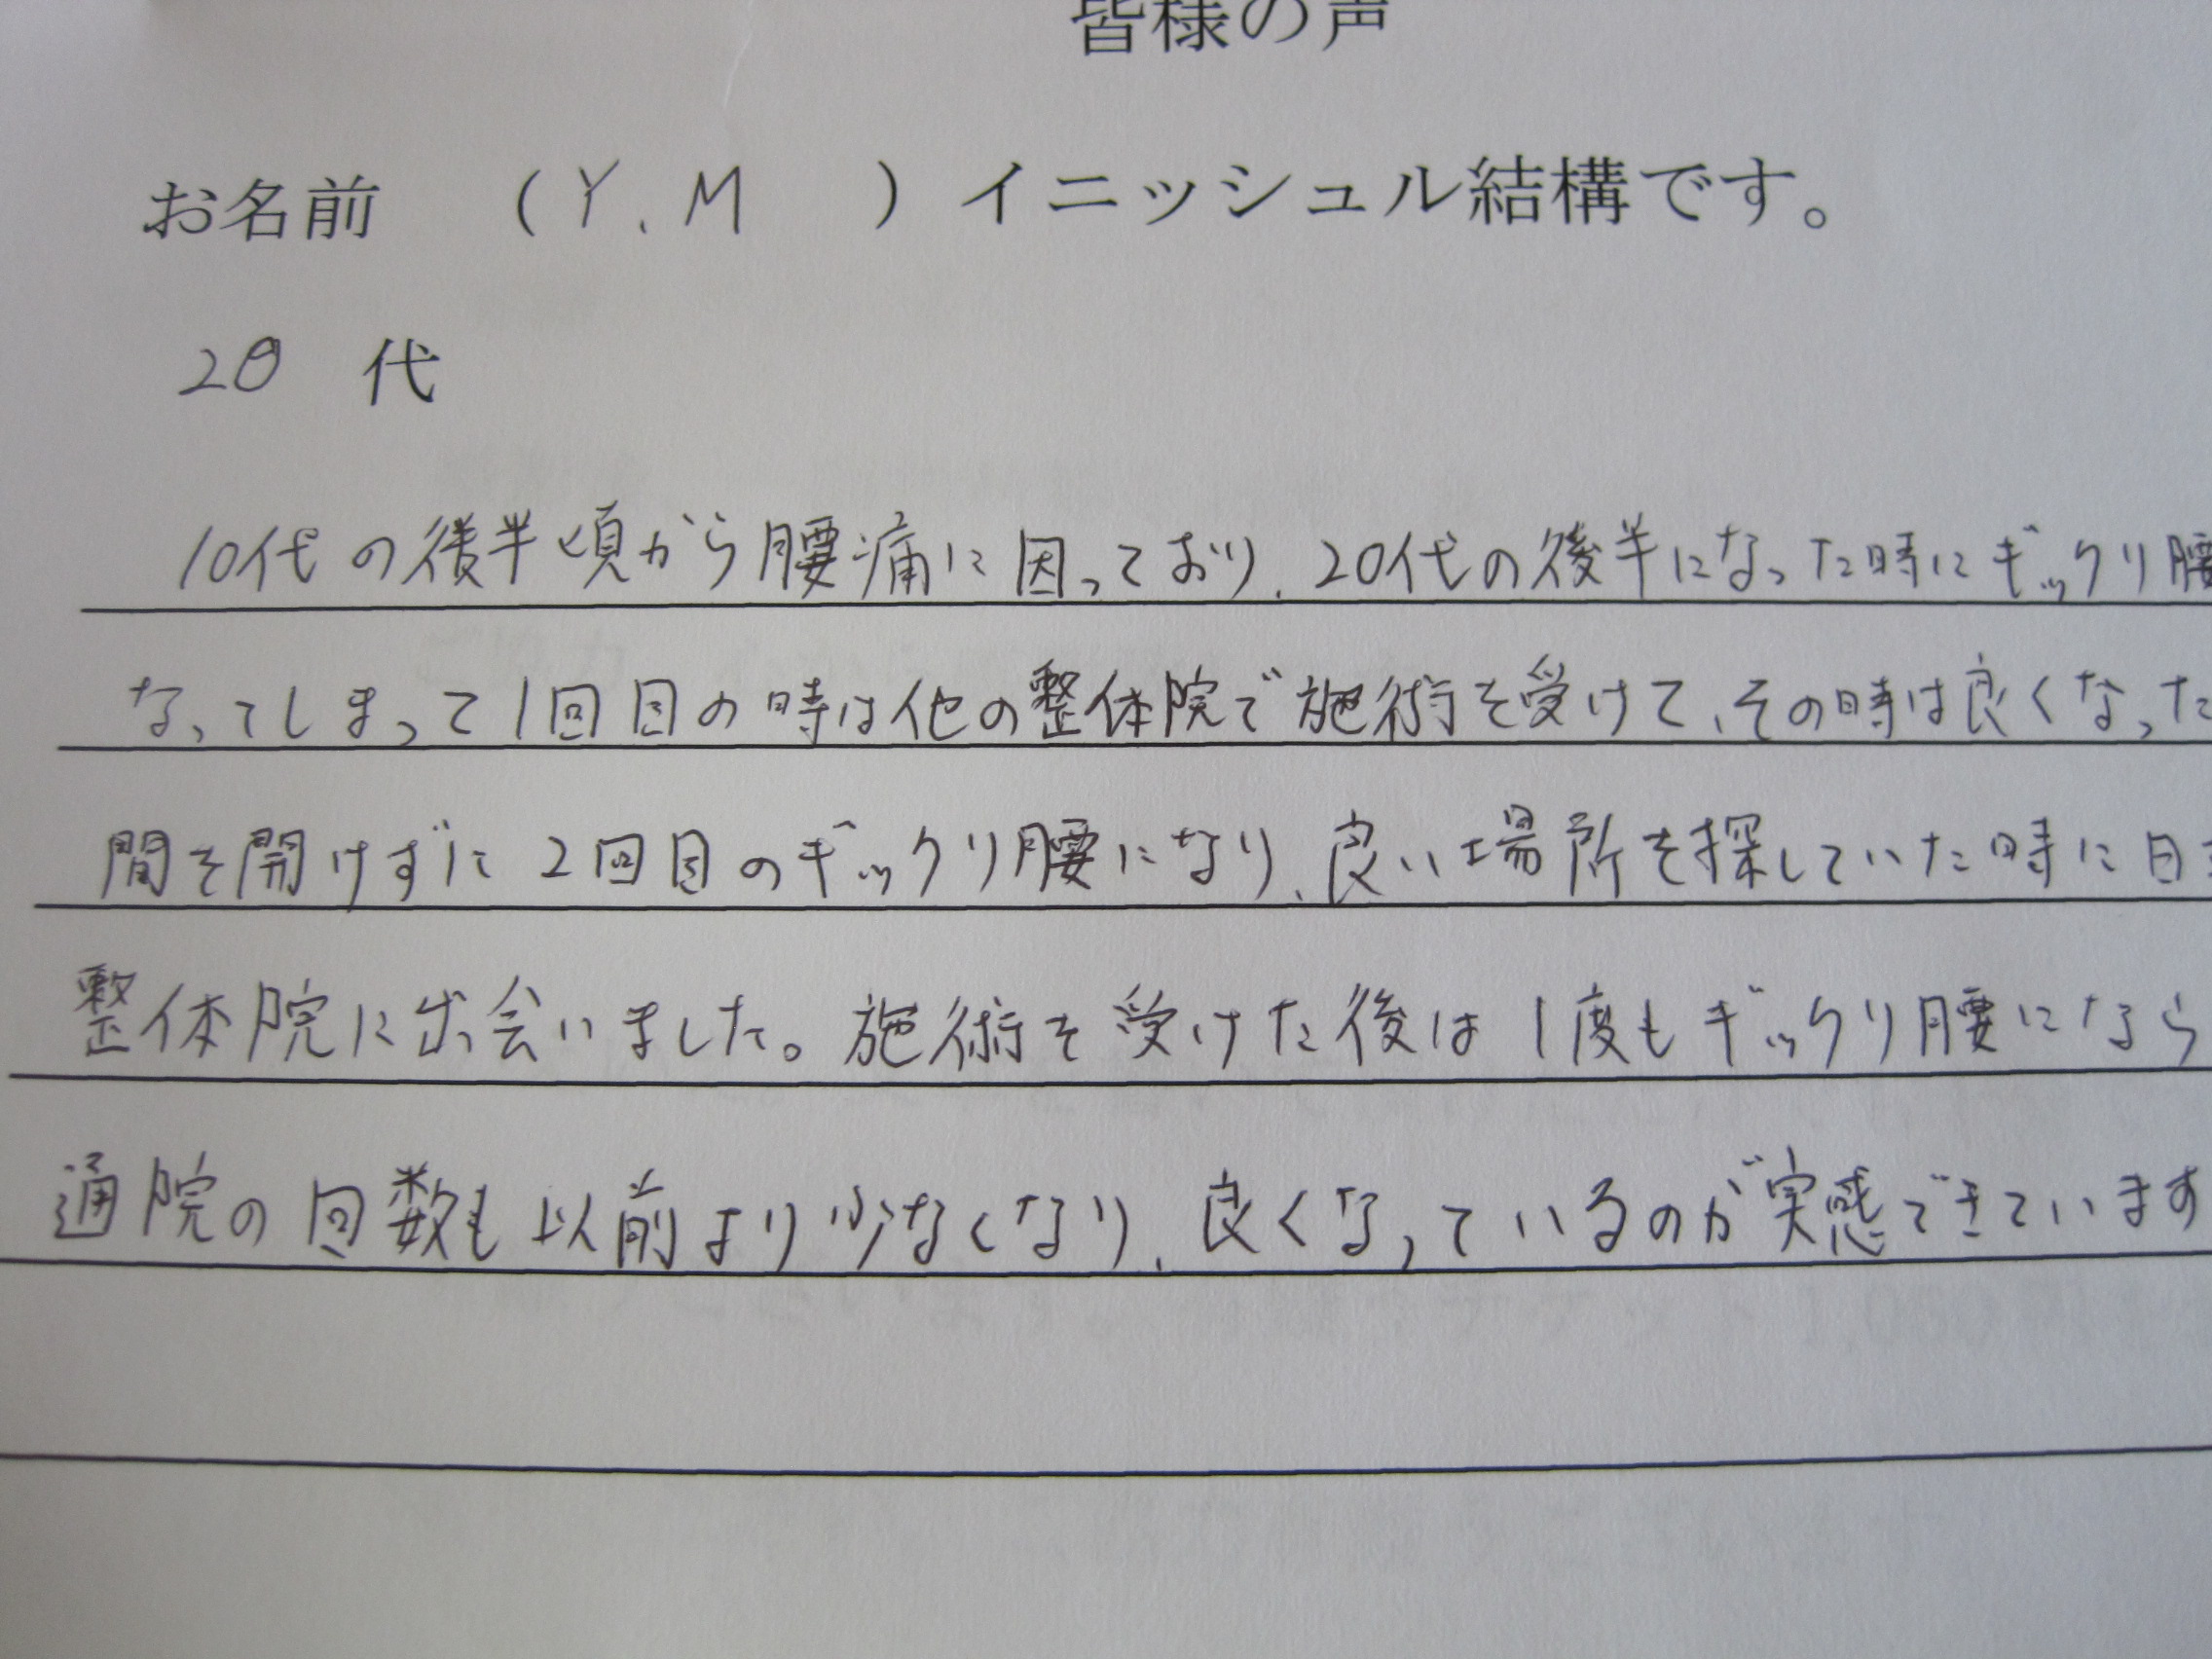 皆様の声
お名前 （Y.M ）イニッシュル結構です。
20 代
10代の後半頃から腰痛に困っており、20代の後半になった時にギックリ腰
なってしまって1回目の時は他の整体院で施術を受けて、その時は良くなった
間を開けずに2回目のギックリ腰になり、良い場所を探していた時に
整体院に出会いました。施術を受けた後は1度もギックリ腰になら
通院の回数も以前より少なくなり、良くなっているのが実感できています